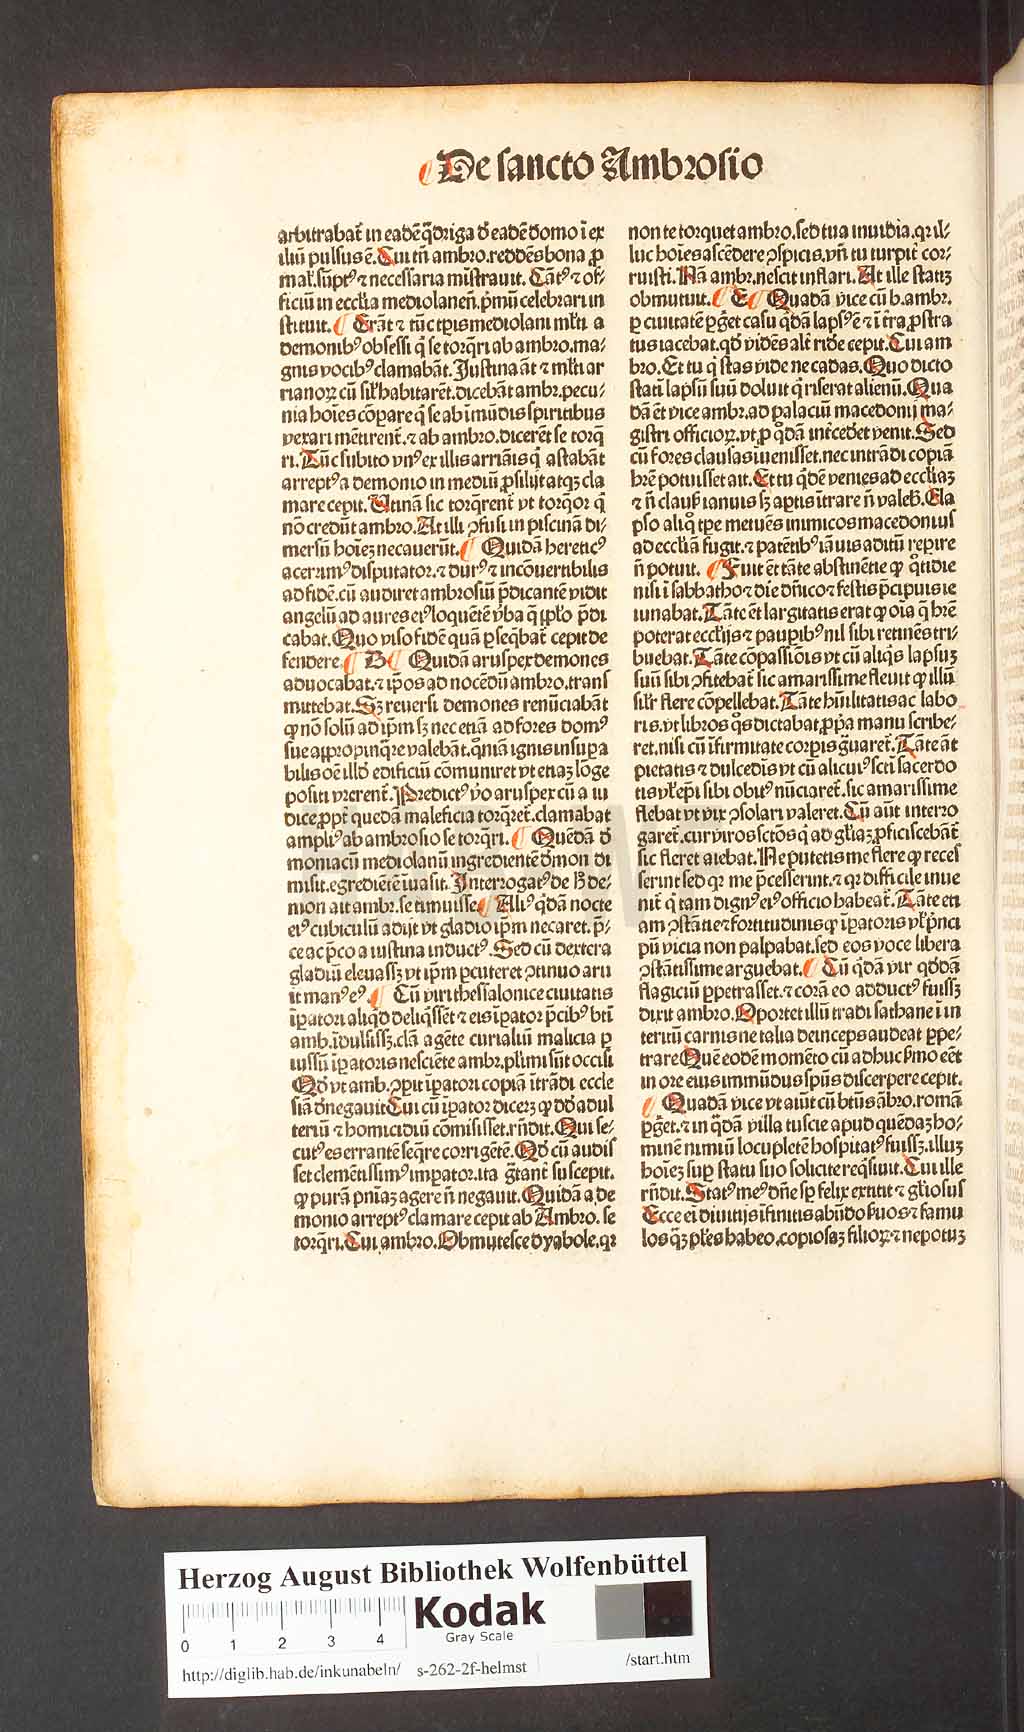 De sancto Ambrosio
arbitrabat̃ in eadē q̃driga ⁊ eadē domo ī ex
iliũ pulsus ē. Cui tñ ambro. reddēs bona ꝓ
mal̕. sũpt⁹ ⁊ necessaria mīstrauit. Cāt⁹ ⁊ of⸗
ficiũ in ecclīa mediolanen̄. p̄mũ celebrari in
stituit. Erāt ⁊ tũc tꝑis mediolani ml̕ti a
demonib⁹ obsessi q̇ se torq̄ri ab ambro. ma⸗
gnis vocib⁹ clamabāt. Justina āt ⁊ ml̕ti ar
rianoꝝ cũ sil̕ habitarēt. dicebāt ambr. pecu⸗
nia hoīes cōpare q̇ se ab īmũdis spiritibus
vexari mētirent̃. ⁊ ab ambro. dicerēt se torq̄
ri. Tũc subito vn⁹ ex illis arriāis q̇ astabāt
arrept⁹ a demonio in mediũ ꝓsilijt atqꝫ cla
mare cepit. Utinā sic torq̄rent̃ vt torq̄or q̇
nō credũt ambro. At illi ↄfusi in piscinā di⸗
mersũ hoīeꝫ necauerũt. Quidā heretic⁹
acerrim⁹ disputator. ⁊ dur⁹ ⁊ incōuertibilis
ad fidē. cũ audiret ambrosiũ p̄dicantē vidit
angelũ ad aures ei⁹ loquētē v̄ba q̄ ip̄e pplo p̄di
cabat. Quo viso fidē quā ꝑseq̄bat̃ cepit de
fendere. B Quidā aruspex demones
aduocabat. ⁊ ip̄os ad nocēdũ ambro. trans
mittebat. Sꝫ reuersi demones renũciabāt
ꝙ nō solũ ad ip̄m sꝫ nec etiā ad fores dom⁹
sue appropinq̄re valebāt. qm̄ ignis insupa
bilis oē illd̕ edificiũ cōmuniret vt etiaꝫ lōge
positi vrerent̃. Predict⁹ v̄o aruspex cũ a iu
dice ꝓpt̕ quedā maleficia torq̄ret̃. clamabat
ampli⁹ ab ambrosio se torq̄ri. Quēdā d̕
moniacũ mediolanũ ingredientē d̕mon di
misit. egrediētē īuasit. Interrogat⁹ de h̕ de⸗
mon ait ambr. se timuisse. Ali⁹ q̇dā nocte
ei⁹ cubiculũ adijt vt gladio ip̄m necaret. p̄⸗
ce ac p̄cio a iustina induct⁹. Sed cũ dextera
gladiũ eleuassꝫ vt ip̄m ꝑcuteret ↄtinuo aru
it man⁹ e⁹. Cũ viri thessalonice ciuitatis
īpatori aliq̇d deliq̄ssēt ⁊ eis īpator p̄cib⁹ bt̄i
amb. īdulsissꝫ. clā agēte curialiũ malicia ꝑ
iussũ īpatoris nesciēte ambr. pl̕imi sũt occisi
Qd̕ vt amb. ↄpit īpatori copiā ītrādi eccle
siā d̕negauit. Cui cũ īpator diceꝫ ꝙ dd̕ adul
teriũ ⁊ homicidiũ cōmisisset. rñdit. Qui se⸗
cut⁹ es errantē seq̄re corrigētē. Qd̕ cũ audis
set clemētissim⁹ impator. ita g̃tant̃ suscepit.
ꝙ purā pn̄iaꝫ agere ñ negauit. Quidā a de
monio arrept⁹ clamare cepit ab Ambro. se
torq̄ri. Cui ambro. Obmutesce dyabole. qꝛ
non te torquet ambro. sed tua inuidia. qꝛ il⸗
luc hoīes ascēdere ↄspicis. vn̄ tu turpit̕ cor⸗
ruisti. Nā ambr. nescit inflari. At ille statiꝫ
obmutuit. E Quadā vice cũ b. ambr.
ꝑ ciuitatē ꝑg̃et casu q̇dā laps⁹ ē ⁊ ī t̕ra ꝓstra
tus iacebat. qd̕ vidēs alt̕ rid̕e cepit. Cui am
bro. Et tu q̇ stas vide ne cadas. Quo dicto
stati lapsũ suũ doluit q̇ riserat alienũ. Qua
dā ēt vice ambr. ad palaciũ macedonij ma⸗
gistri officioꝝ. vt ꝓ q̊dā int̕cedet venit. Sed
cũ fores clausas iuenisset. nec intrādi copiā
h̄re potuisset ait. Et tu q̇dē venies ad ecclīaꝫ
⁊ ñ claus̕ ianuis sꝫ aptis ītrare ñ valeb̕. Ela
pso aliq̊ tꝑe metuēs inimicos macedonius
ad ecclīaꝫ fugit. ⁊ patētib⁹ ianuis aditũ repire
ñ potuit. Fuit ēt tāte abstinētie ꝙ q̊tidie
nisi ī sabbatho ⁊ die dñico ⁊ festis p̄cipuis ie
iunabat. Tāte ēt largitatis erat ꝙ oīa q̄ h̄re
poterat ecclījs ⁊ paupib⁹ nil sibi retinēs tri⸗
buebat. Tāte cōpassiōis vt cũ aliq̇s lapsuꝫ
suũ sibi ↄfitebat̃ sic amarissime fleuit ꝙ illũ
sil̕r flere cōpellebat. Tāte hũilitatis ac labo
ris. vt libros q̊s dictabat. ꝓp̕a manu scribe⸗
ret. nisi cũ īfirmitate corꝑis g̃uaret̃. Tāte āt
pietatis ⁊ dulcedīs vt cũ alicui⁹ scti sacerdo
tis vl̕ ep̄i sibi obit⁹ nũciaret̃. sic amarissime
flebat vt vix ↄsolari valeret. Cũ aũt interro
garet̃. cur viros sctōs q̇ ad gl̕iaꝫ ꝓficiscebāt̃
sic fleret aiebat. Ne putetis me flere ꝙ reces
serint sed qꝛ me p̄cesserint. ⁊ qꝛ difficile inue
nit̃ q̇ tam dign⁹ ei⁹ officio habeat̃. Tāte eti
am ↄstātie ⁊ fortitudinis ꝙ īpatoris vl̕ p̕nci
pũ vicia non palpabat. sed eos voce libera
ↄstātissime arguebat. Cũ q̇dā vir q̊ddā
flagiciũ ꝑpetrasset. ⁊ corā eo adduct⁹ fuissꝫ
dixit ambro. Oportet illũ tradi sathane ī in
teritũ carnis ne talia deinceps audeat ꝑpe⸗
trare. Quē eodē momēto cũ adhuc s̕mo eēt
in ore eius immũdus spũs discerpere cepit.
Quadā vice vt aiũt cũ bt̄us ābro. romā
ꝑg̃et. ⁊ in q̇dā villa tuscie apud quēdaꝫ ho⸗
minē nimiũ locupletē hospitat⁹ fuissꝫ. illuꝫ
hoīeꝫ suꝑ statu suo solicite req̇siuit. Cui ille
rñdit. Stat⁹ me⁹ dñe sꝑ felix extitit ⁊ gl̕iosus
Ecce ei̕ diuitijs īfinitis abũdo s̕uos ⁊ famu
los q̄ꝫ pl̕es habeo. copiosaꝫ filioꝝ ⁊ nepotuꝫ
Herzog August Bibliothek Wolfenbüttel
0 1 2 3 4
Kodak
Gray Scale
http://diglib.hab.de/inkunabeln/ s-262-2f-helmst /start.htm